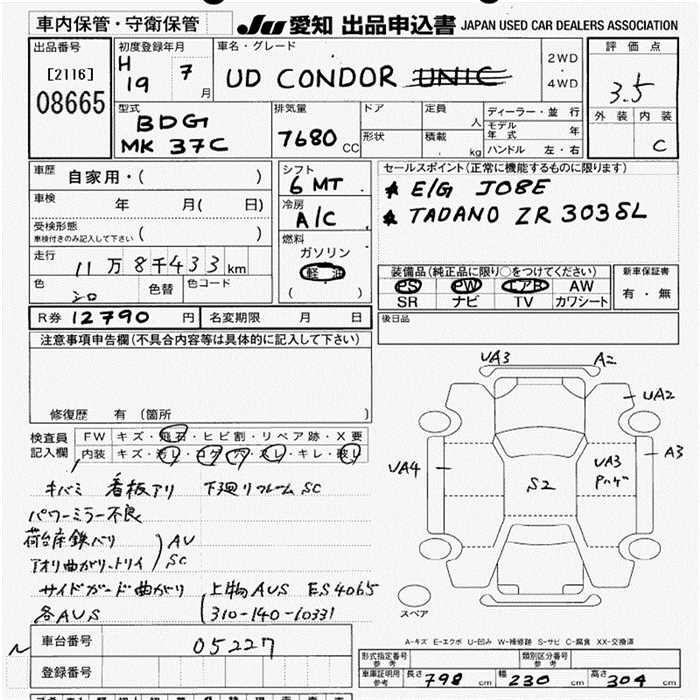 車内保管・守衛保管
JU 愛知 出品申込書 JAPAN USED CAR DEALERS ASSOCIATION
出品番号
[2116]
08665
初度登録年月
H 19 7 月
車名・グレード
UD CONDOR UNIC
2WD
・
4WD
評価点
3.5
外装 内装
C
型式
BDG
MK 37C
排気量
7680 CC
ドア
形状
定員
人
積載
kg
ディーラー・並行
モデル年式 年
ハンドル 左・右
車歴 自家用・( )
車検 年 月( 日)
受検形態
車検付きのみ記入して下さい ( )
走行
11万8千433km
色
シロ
色替
色コード
シフト
6 MT
冷房
A/C
燃料
ガソリン
軽油
( )
セールスポイント(正常に機能するものに限ります)
★ E/G J08E
★ TADANO ZR 303SL
装備品(純正品に限り○をつけてください)
PS PW エアB AW
SR ナビ TV カワシート
新車保証書
有・無
R券 12790 円
名変期限 月 日
後日品
注意事項申告欄(不具合内容等は具体的に記入して下さい)
修復歴 有 (箇所 )
検査員
記入欄
FW キズ・飛石・ヒビ割・リペア跡・X要
内装 キズ・汚レ・コゲ・穴・スレ・キレ・破レ
キバミ 看板アリ 下廻リフレームSC
パワーミラー不良
荷台床鉄ハリ
アオリ曲がリ、トリイ
AU
SC
サイドガード曲がリ 上物AUS ES4065
各AUS (310-140-10331
UA3
A2
UA2
A3
UA4
S2
UA3
Pハゲ
スペア
A-キズ E-エクボ U-凹み W-補修跡 S-サビ C-腐食 XX-交換済
車台番号 05227
登録番号
形式指定番号
参考
類別区分番号
参考
車庫証明用
参考
長さ 798 cm 幅 230 cm 高さ 304 cm